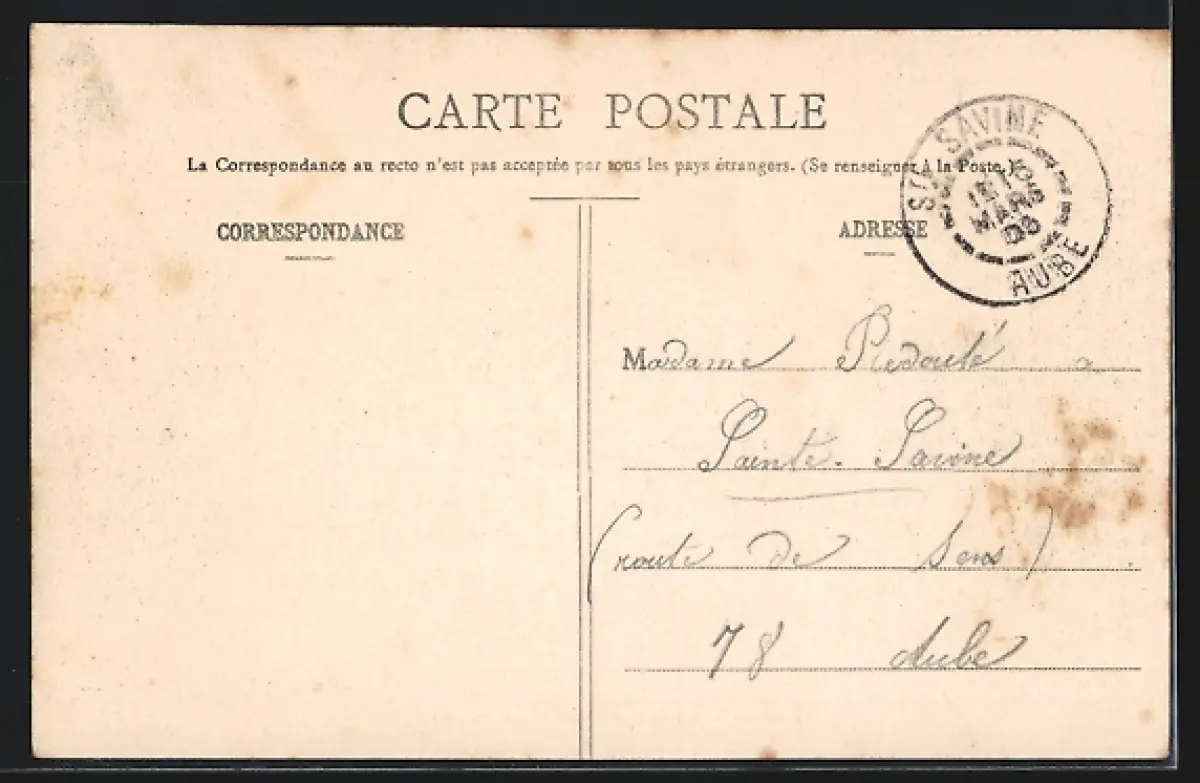 CARTE POSTALE
La Correspondance au recto n'est pas acceptée par tous les pays étrangers. (Se renseigner à la Poste.)
CORRESPONDANCE
ADRESSE
STE SAVINE
MARS
AUBE
Madame Redouté a
Sainte-Savine
(route de Sens)
78 Aube